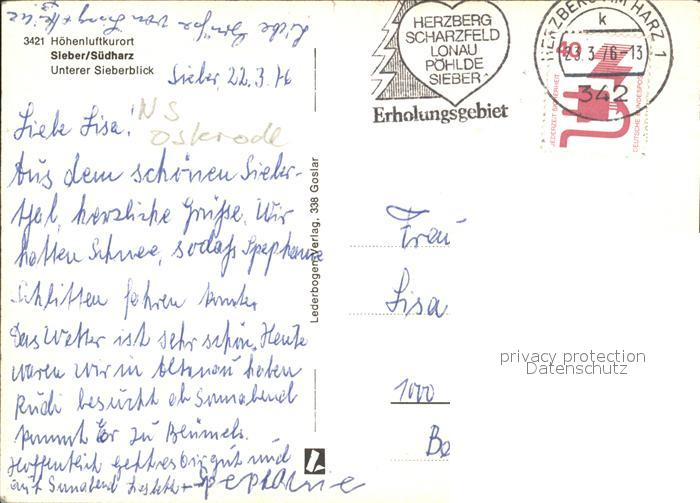 Liebe Grüße von
3421 Höhenluftkurort
Sieber/Südharz
Unterer Sieberblick
Sieber, 22.3.76
NS
Osterode
Liebe Lisa!
Aus dem schönen Sieber-
tal, herzliche Grüße. Wir
hatten Schnee, sodaß Stephanie
Schlitten fahren konnte.
Das Wetter ist sehr schön. Heute
waren wir in Altenau haben
Rudi besucht ab Sonnabend
kommt Er zu Blümels.
Hoffentlich geht es dir gut und
Stephanie
Lederbogen-Verlag, 338 Goslar
HERZBERG
SCHARZFELD
LONAU
PÖHLDE
SIEBER
Erholungsgebiet
HERZBERG AM HARZ 1
k
23.3.76-13
342
40
JEDERZEIT SICHERHEIT
DEUTSCHE BUNDESPOST
Frau
Lisa
1000
Be
privacy protection
Datenschutz